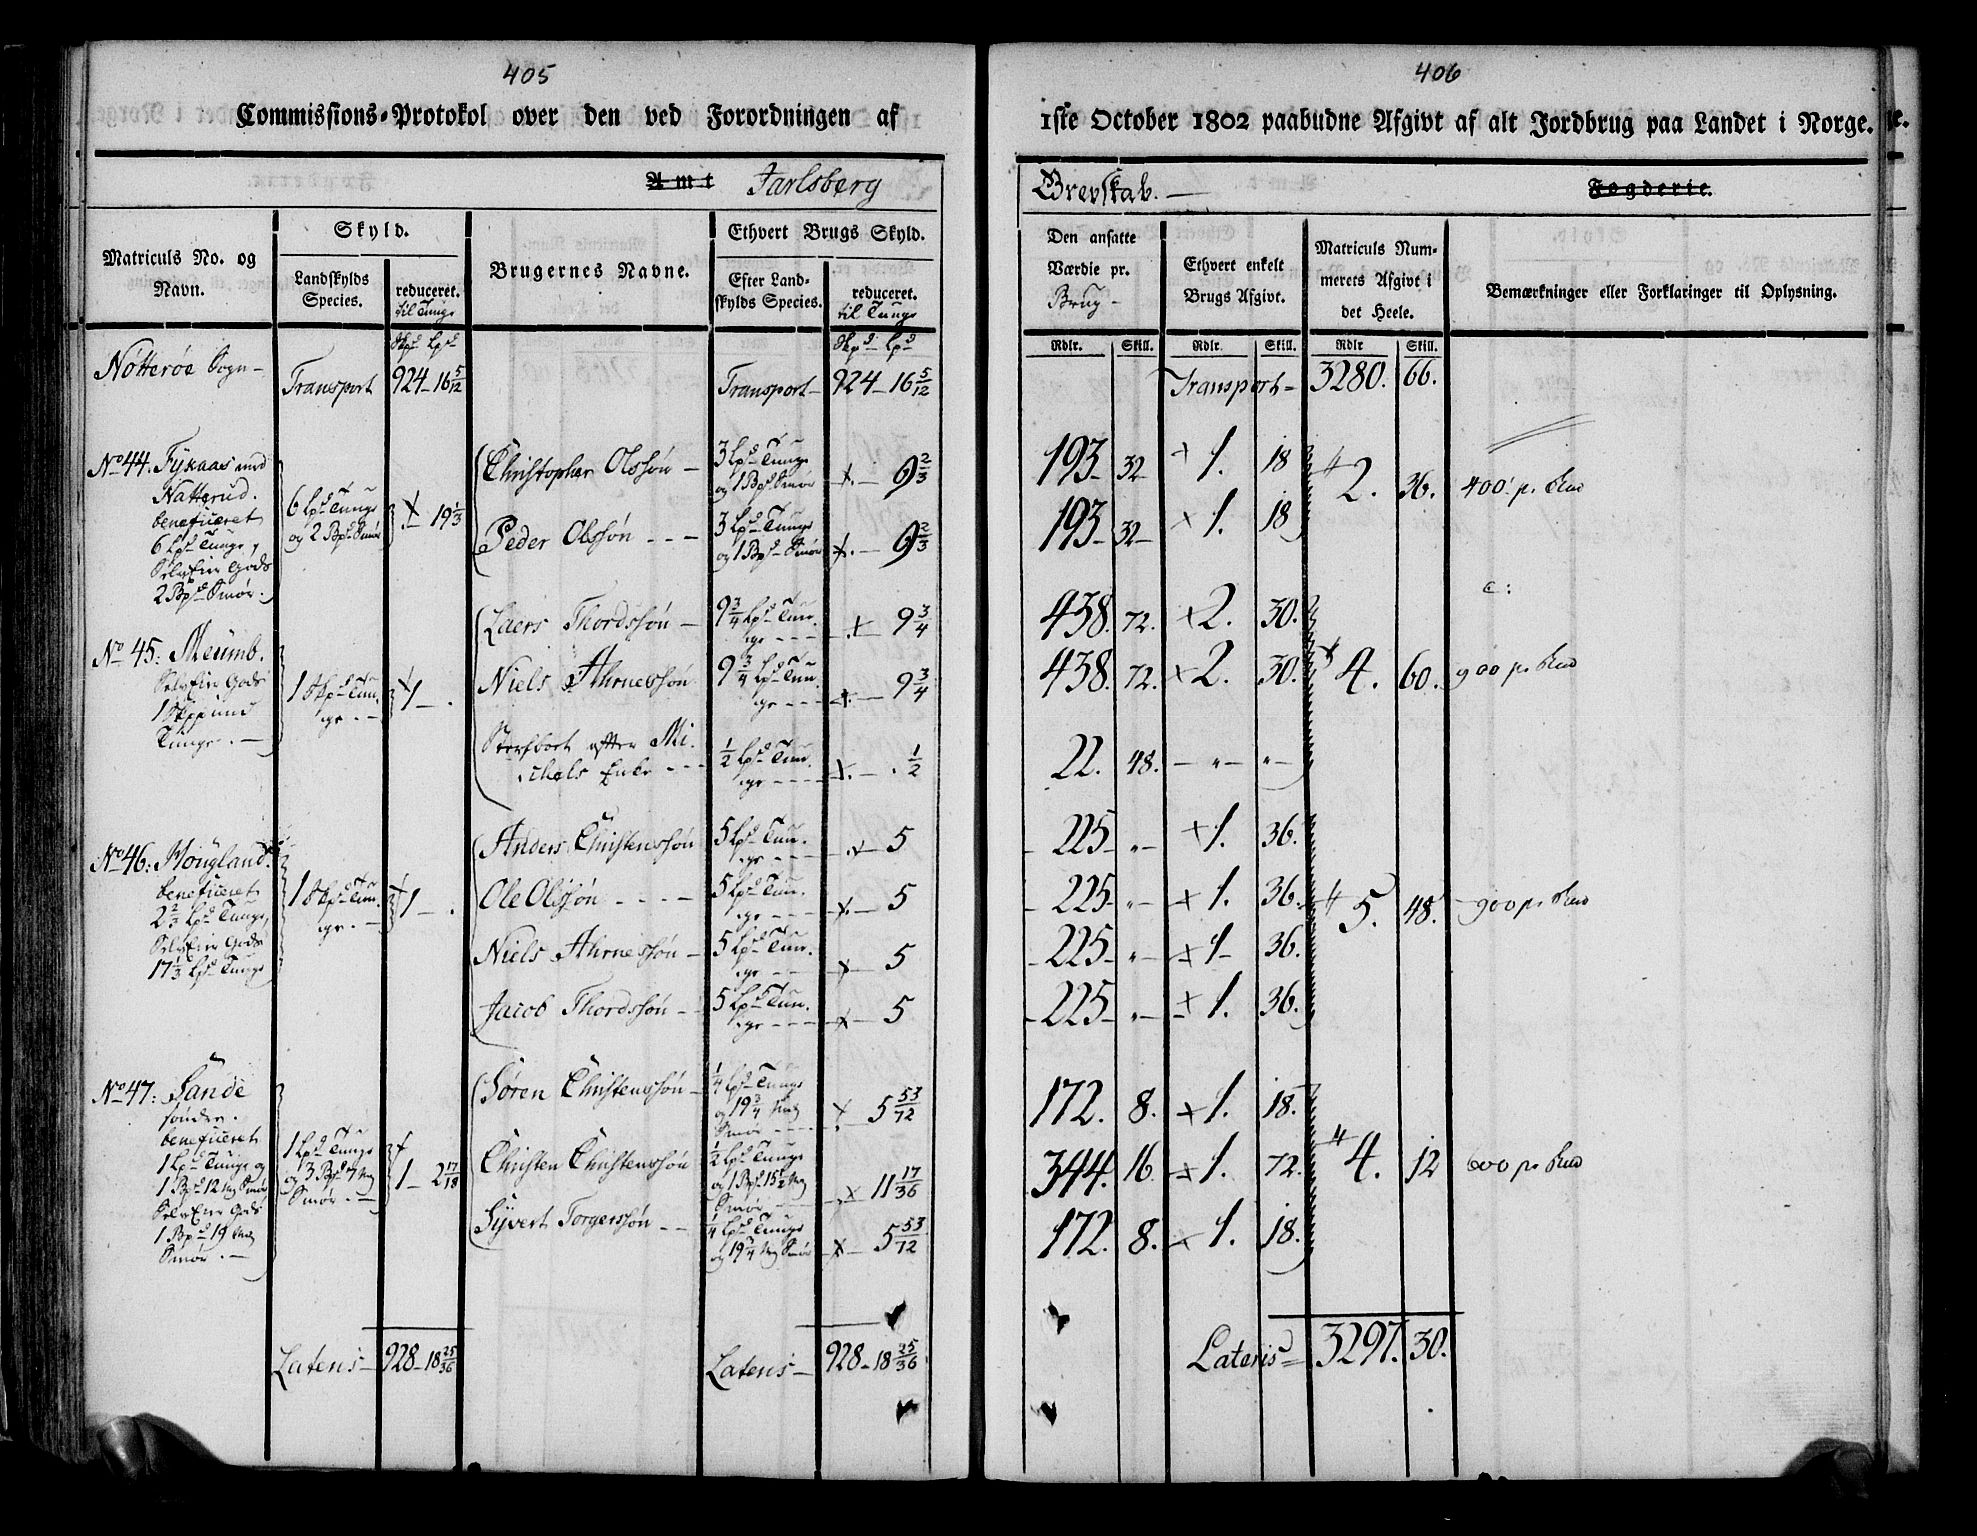 405
Commissions-Protokol over den ved Forordningen af
Amt Jarlsberg
Matriculs No. og Navn.
Skyld.
Landskylds Species.
reduceret. til Tunge
Brugernes Navne.
Ethvert Brugs Skyld.
Efter Landskylds Species.
reduceret. til Tunge
Skpd Lpd
Skpd Lpd
Nøtterøe Sogn -
Transport 924 - 16 5/12
Transport - 924 - 16 5/12
No 44. Fyxaas med
Natterud.
beneficeret
6 Lpd Tunge,
SelvEier Gods
2 Bpd Smør.
6 Lpd Tunge
og 2 Bpd Smør
- 19 1/3
Christopher Olssøn -
3 Lpd Tunge
og 1 Bpd Smør
- 9 2/3
Peder Olssøn - - -
3 Lpd Tunge
og 1 Bpd Smør
- 9 2/3
No 45: Meumb.
SelvEier Gods
1 Skippund
Tunge. -
1 Skpd Tun-
ge - -
1 - .
Laers Thordssøn -
9 3/4 Lpd Tun-
ge - - -
- 9 3/4
Niels Ahrnessøn
9 3/4 Lpd Tun.
ge - - -
- 9 3/4
Sterfboet efter Mi-
chels Enke - - -
1/2 Lpd Tun-
ge - - -
- . 1/2
No 46: Hougland.
beneficeret
2 2/3 Lpd Tunge,
SelvEier Gods
17 1/3 Lpd Tunge
1 Skpd Tun-
ge. -
1 - .
Anders Christenssøn
5 Lpd Tun-
ge - - -
- 5
Ole Olssøn - - - -
5 Lpd Tun.
ge - - -
- 5
Niels Ahrnessøn -
5 Lpd Tun.
ge - - -
- 5
Jacob Thordssøn - -
5 Lpd Tun.
ge - - -
- 5
No 47: Sande
søndre.
beneficeret
1 Lpd Tunge og
1 Bpd 12 Mrk Smør
SelvEier Gods
1 Bpd 19 Mrk
Smør. -
1 Lpd Tunge
og 3 Bpd 7 Mrk
Smør. -
1 - 2 17/18
Søren Christenssøn -
1/4 Lpd Tunge
og 19 3/4 Mrk
Smør - - -
- 5 53/72
Christen Christenssøn
1/2 Lpd Tunge
og 1 Bpd 15 1/2 Mrk
Smør - - -
- 11 17/36
Syvert Torgerssøn - -
1/4 Lpd Tunge
og 19 3/4 Mrk Smør
- 5 53/72
Lateris - 928 - 18 25/36
Lateris - 928 - 18 25/36
406
1ste October 1802 paabudne Afgivt af alt Jordbrug paa Landet i Norge.
Grevskab. -
Fogderie.
Den ansatte Værdie pr. Brug -
Ethvert enkelt Brugs Afgivt.
Matriculs Nummerets Afgivt i det Heele.
Bemærkninger eller Forklaringer til Oplysning.
Rdlr. Skill. Rdlr. Skill. Rdlr. Skill.
Transport - 3280. 66.
193 - 32 1. 18
2. 36. 400. pr.
193 - 32 - 1. 18
438. 72. 2. 30.
438. 72. 2. 30. 4. 60. 900 pr.
22. 48. - " - " -
225 - " - 1. 36.
225 - " - 1. 36. 5. 48. - 900 pr.
225 - " - 1 - 36.
225 - " - 1. 36.
172. 8. 1. 18.
344. 16 1. 72. 4. 12 600 pr.
172. 8. 1. 18.
Lateris 3297. 30.